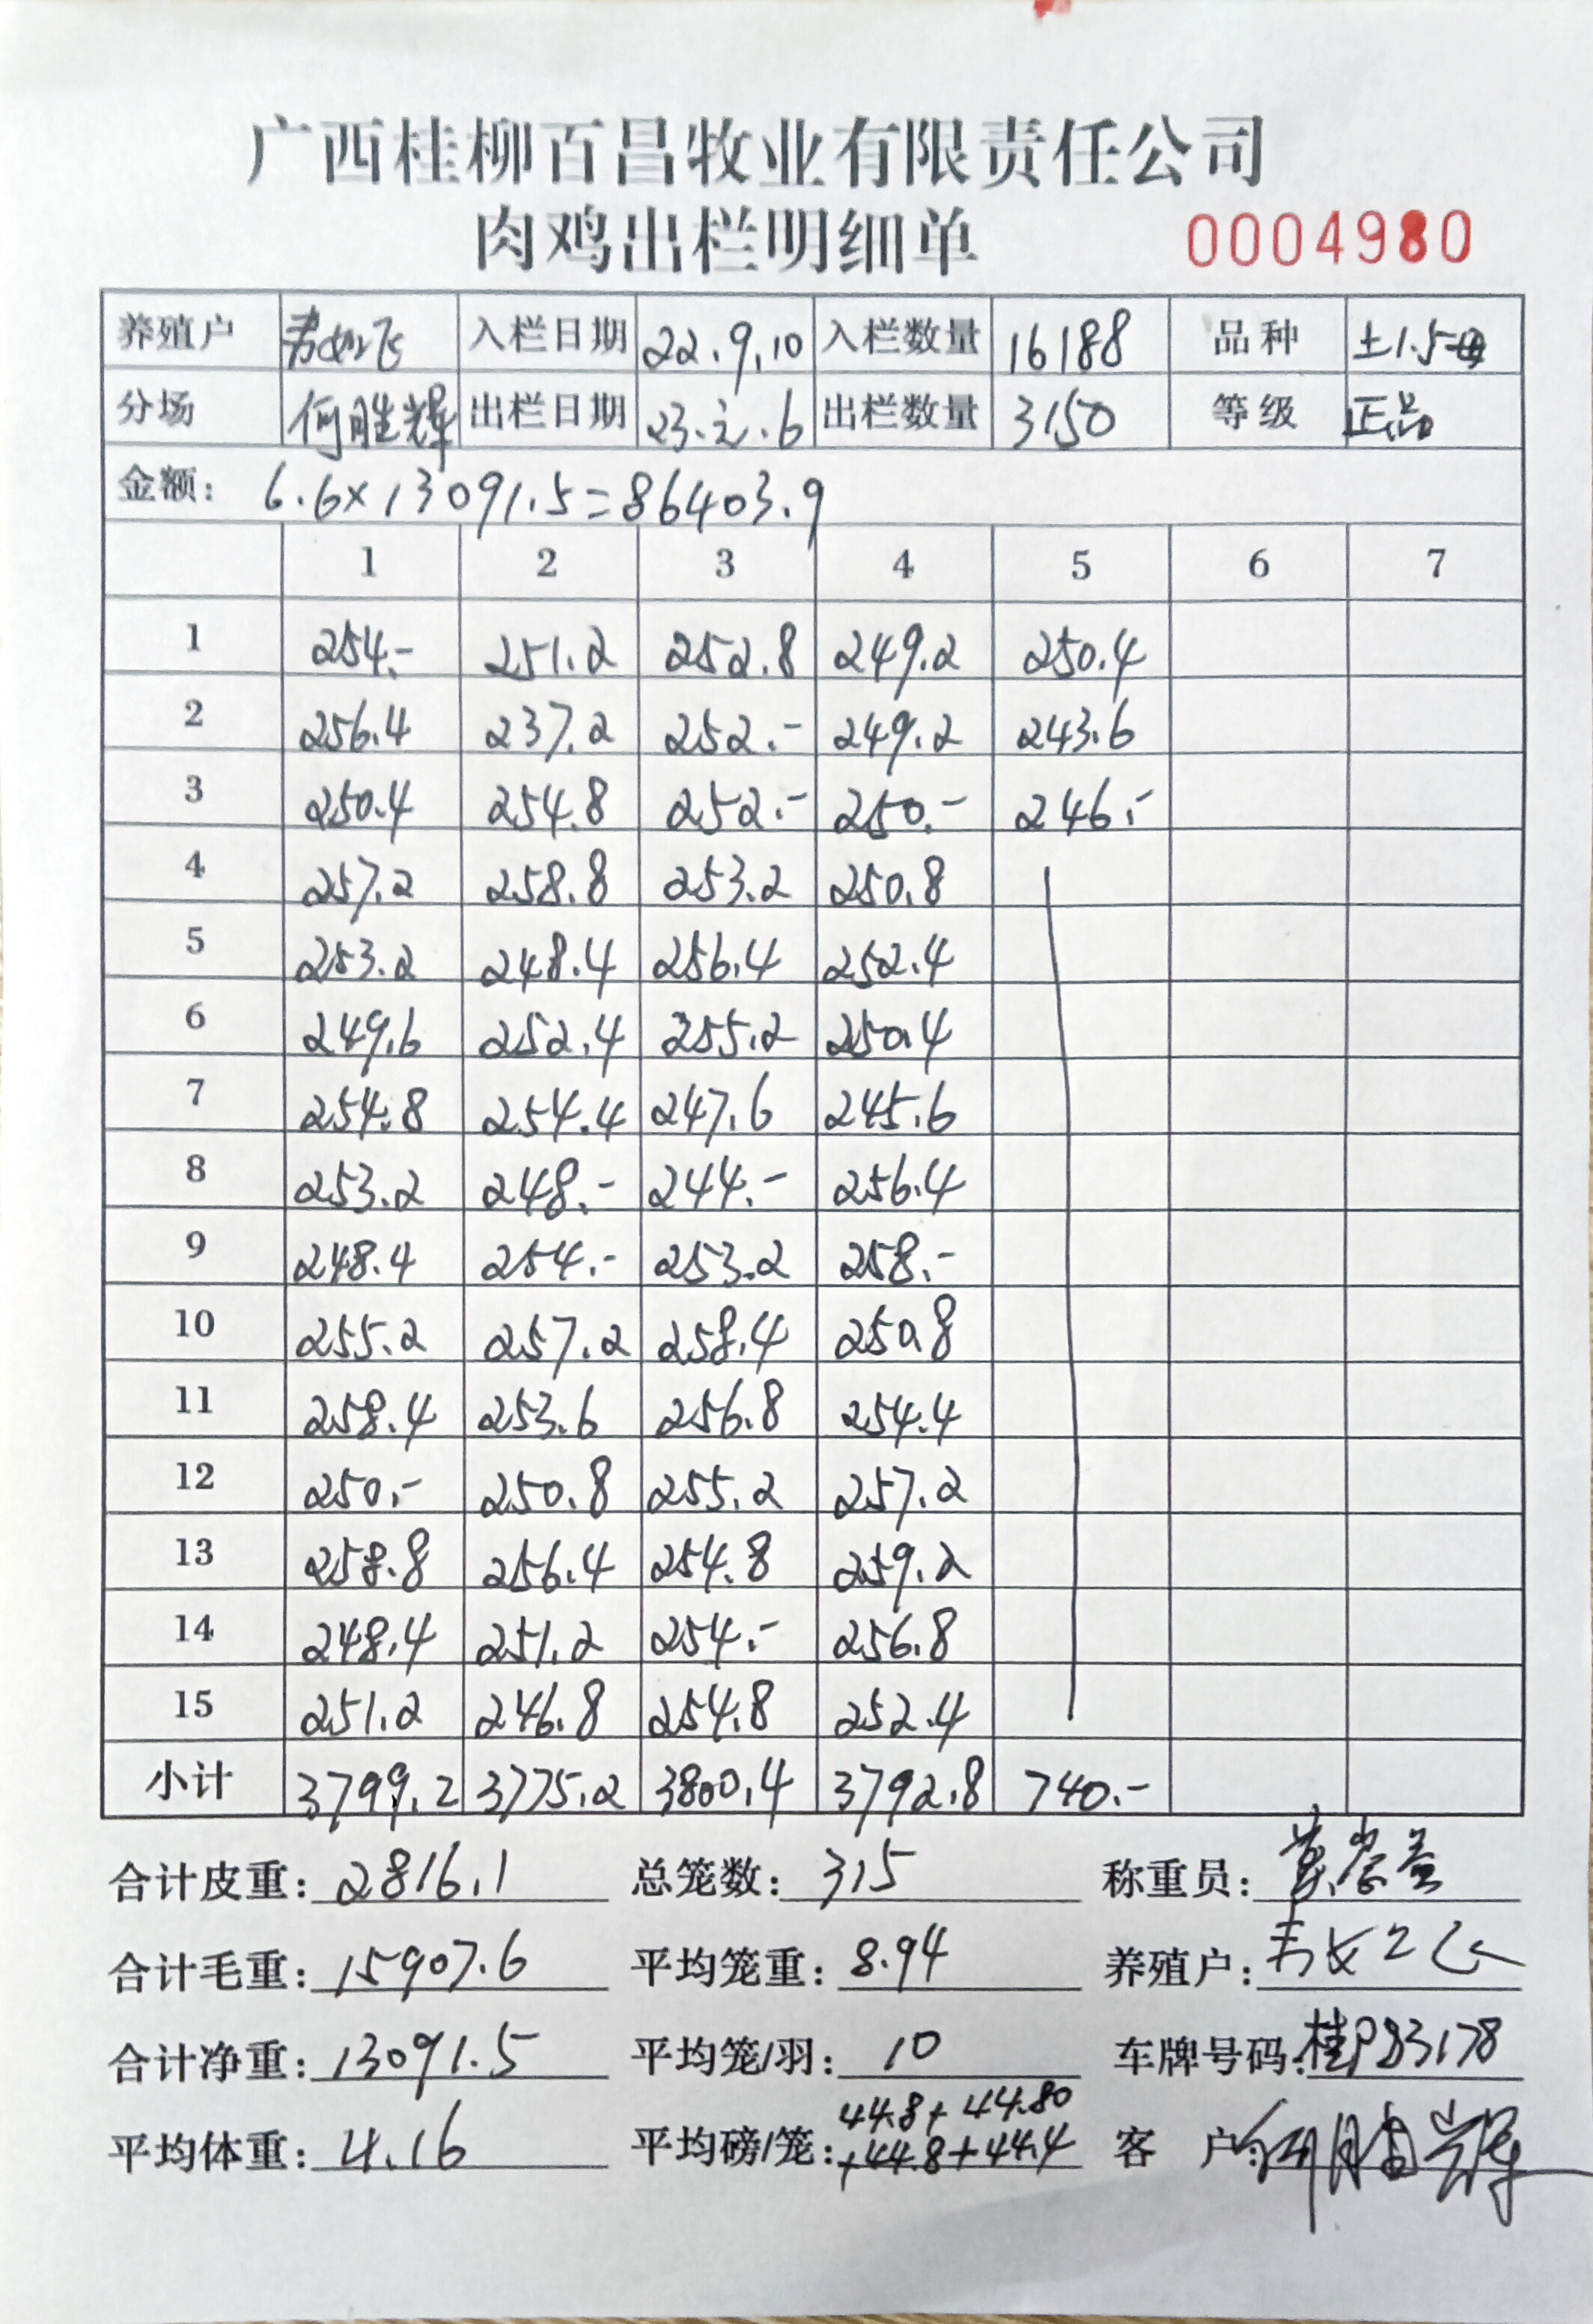 广西桂柳百昌牧业有限责任公司
肉鸡出栏明细单 0004980
养殖户 入栏日期 22.9.10 入栏数量 16188 品种 土1.5
分场 何胜辉 出栏日期 23.元.6 出栏数量 3150 等级 正品
金额: 6.6×13091.5=86403.9
1 2 3 4 5 6 7
1 254.- 251.2 252.8 249.2 250.4
2 256.4 237.2 252.- 249.2 243.6
3 250.4 254.8 252.- 250.- 246.-
4 257.2 258.8 253.2 250.8
5 253.2 248.4 256.4 252.4
6 249.6 252.4 255.2 250.4
7 254.8 254.4 247.6 245.6
8 253.2 248.- 244.- 256.4
9 248.4 254.- 253.2 258.-
10 255.2 257.2 258.4 250.8
11 258.4 253.6 256.8 254.4
12 250.- 250.8 255.2 257.2
13 258.8 256.4 254.8 259.2
14 248.4 251.2 254.- 256.8
15 251.2 246.8 254.8 252.4
小计 3799.2 3775.2 3800.4 3792.8 740.-
合计皮重: 2816.1 总笼数: 315 称重员:
合计毛重: 15907.6 平均笼重: 8.94 养殖户:
合计净重: 13091.5 平均笼/羽: 10 车牌号码: 桂P83178
44.8+44.80
平均体重: 4.16 平均磅/笼: +44.8+44.4 客 户: 何胜辉